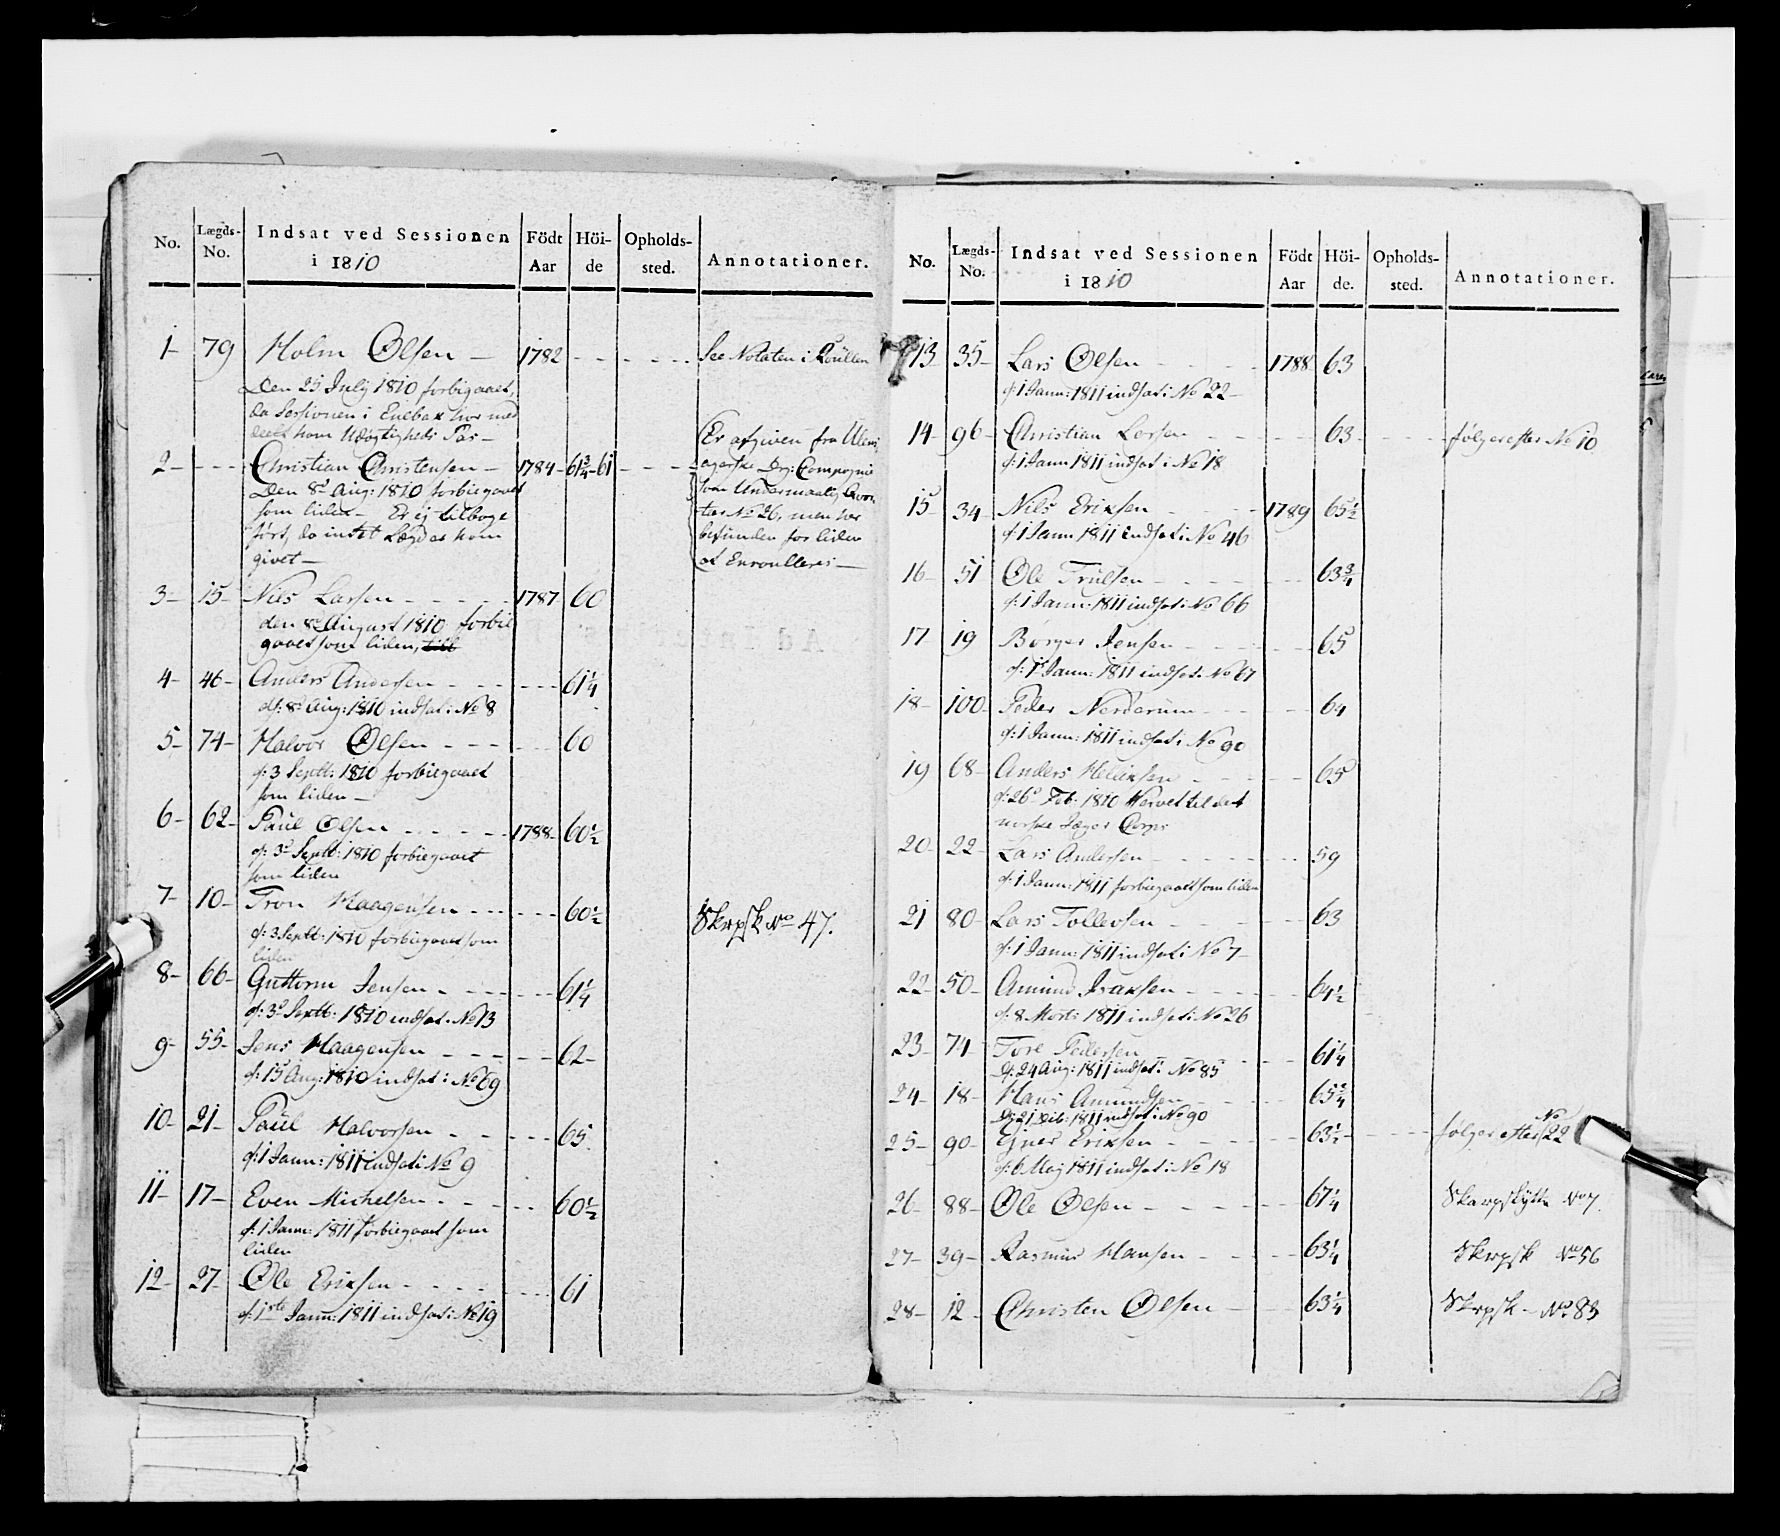 No.
Lægds-
No.
Indsat ved Sessionen
i 1810
Födt
Aar
Höi-
de
Opholds-
sted.
Annotationer.
1- 79 Holm Olsen - 1782 - - - - - - See Notaten i Roullen
Den 25 July 1810 forbigaaet,
da Sessionen i Enebak har med
deelt ham Udygtigheds Pas-
2- - - - Christian Christensen - 1784- 61¾-61 - - - - Er afgiven fra Ulens-
agerske Drg: Compagnie
som Undermaalig
No 26, men her
befunden for liden
at Enroulleres-
Den 8d Aug: 1810 forbiegaaet
som liden- Er ej tilbage
ført, da intet Lægd er ham
givet-
3- 15- Niels Larsen - - - - - 1787 60
den 8de August 1810 forbie
gaaet som liden,
4- 46- Anders Andersen - - - - - - 61¼
d: 8d Aug: 1810 indsat: No 8
5- 74- Halvor Olsen - - - - - - 60
d: 3 Septb: 1810 forbiegaaet
som liden-
6- 62- Paul Olsen - - - - - - 1788- 60½
d: 3d Septb: 1810 forbiegaaet
som liden
7- 10- Tron Haagensen - - - - - - 60½ Skrpsk No 47.
d: 3 Septb: 1810 forbiegaaet som
liden
8- 66- Guttorm Jensen - - - - - - 61¼
d: 3d Septb: 1810 indsat: No 13
9- 55- Jens Haagensen - - - - - - 62-
d: 15 Aug: 1810 indsat: No 69
10- 21- Paul Halvorsen - - - - - 65
d: 1 Janu: 1811 indsat: No 9
11- 17- Even Michelsen - - - - - 60½
d: 1 Janu: 1811 forbiegaaet som
liden
12- 27- Ole Eriksen - - - - - - 61
d: 1ste Janu: 1811 indsat: No 19
No.
Lægds-
No.
Indsat ved Sessionen
i 1810
Födt
Aar
Höi-
de.
Opholds-
sted.
Annotationer.
13 35- Lars Olsen - - - - 1788 63
d: 1 Janu: 1811 indsat: No 22-
14- 96- Christian Larsen - - - - 63- - - - følger efter No 10
d: 1 Janu 1811 indsat: No 18
15 34- Nils Eriksen - - - - 1789 65½
d: 1 Janu 1811 indsat: No 46
16- 51 Ole Trulsen - - - - - - 63¾
d: 1 Janu: 1811 indsat: No 66
17 19 Børger Jensen - - - - - - 65
d: 1 Janu: 1811 indsat: No 67
18- 100- Peder Nerderum - - - - - 64
d: 1 Janu: 1811 indsat: No 90
19 68- Anders - - - - 65
d: 26d Feb: 1810 Hervet til det
norske Jæger Corps
20- 22- Lars Andersen - - - - - - 59
d: 1 Janu: 1811 forbiegaaet som liden
21 80- Lars Tollevsen - - - - 63
d: 1 Janu: 1811 indsat: No 7-
22- 50- Amund Isaksen - - - - - 64½
d: 8 Marts 1811 indsat: No 26
23- 74- Tore Pedersen - - - - 61¼
d: 24 Aug: 1811 indsat: No 85
24- 18- Hans Amundsen - - - - 65¾
d: 21 Feb: 1811 indsat: No 90
25- 90- Eriksen - - - - - 63½- - - - følger efter No 22
d: 6 Maj 1811 indsat: No 18
26- 88- Ole Olsen - - - - - - 67¼ Skarpskytte No 7.
27- 39- Rasmus Hansen - - - - - 63¼ Skrpsk No 56
28- 12- Christen Olsen - - - 63¼ Skrpsk- No 83